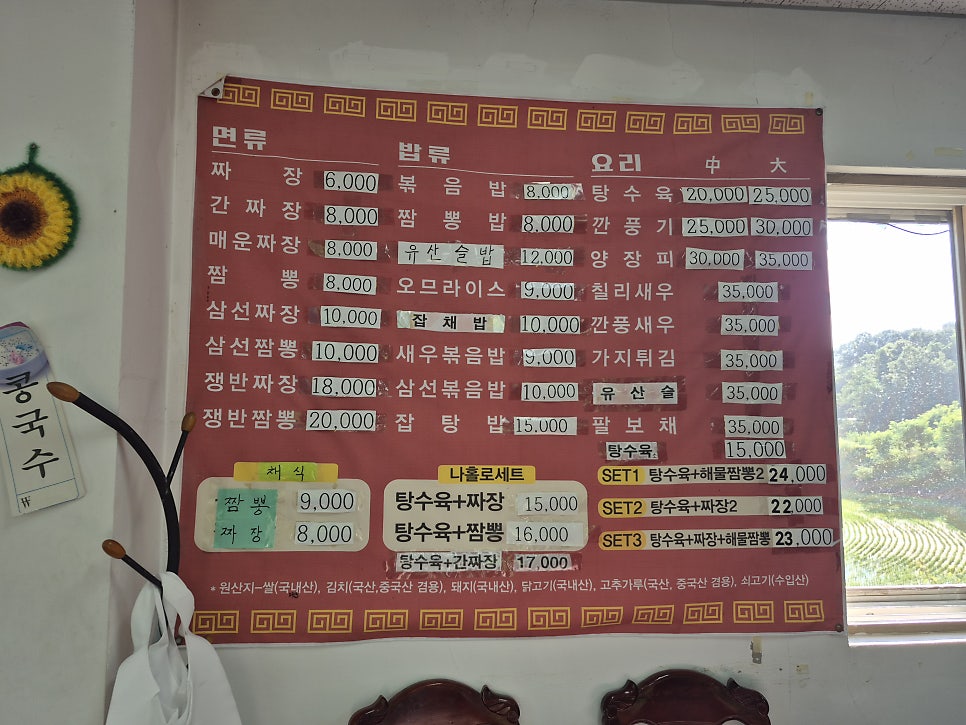 면류
짜장 6,000
간짜장 8,000
매운짜장 8,000
짬뽕 8,000
삼선짜장 10,000
삼선짬뽕 10,000
쟁반짜장 18,000
쟁반짬뽕 20,000
밥류
볶음밥 8.000
짬뽕밥 8,000
유산슬밥 12,000
오므라이스 9,000
잡채밥 10,000
새우볶음밥 9,000
삼선볶음밥 10,000
잡탕밥 15.000
요리 中 大
탕수육 20,000 25,000
깐풍기 25,000 30,000
양장피 30,000 35,000
칠리새우 35,000
깐풍새우 35,000
가지튀김 35,000
유산슬 35,000
팔보채 35,000
탕수육 15,000
채식
짬뽕 9,000
짜장 8,000
나홀로세트
탕수육+짜장 15,000
탕수육+짬뽕 16,000
탕수육+간짜장 17,000
SET1 탕수육+해물짬뽕2 24,000
SET2 탕수육+짜장2 22,000
SET3 탕수육+짜장+해물짬뽕 23,000
* 원산지-쌀(국내산), 김치(국산,중국산 겸용), 돼지(국내산), 닭고기(국내산), 고추가루(국산, 중국산 겸용), 쇠고기(수입산)
콩국수
₩